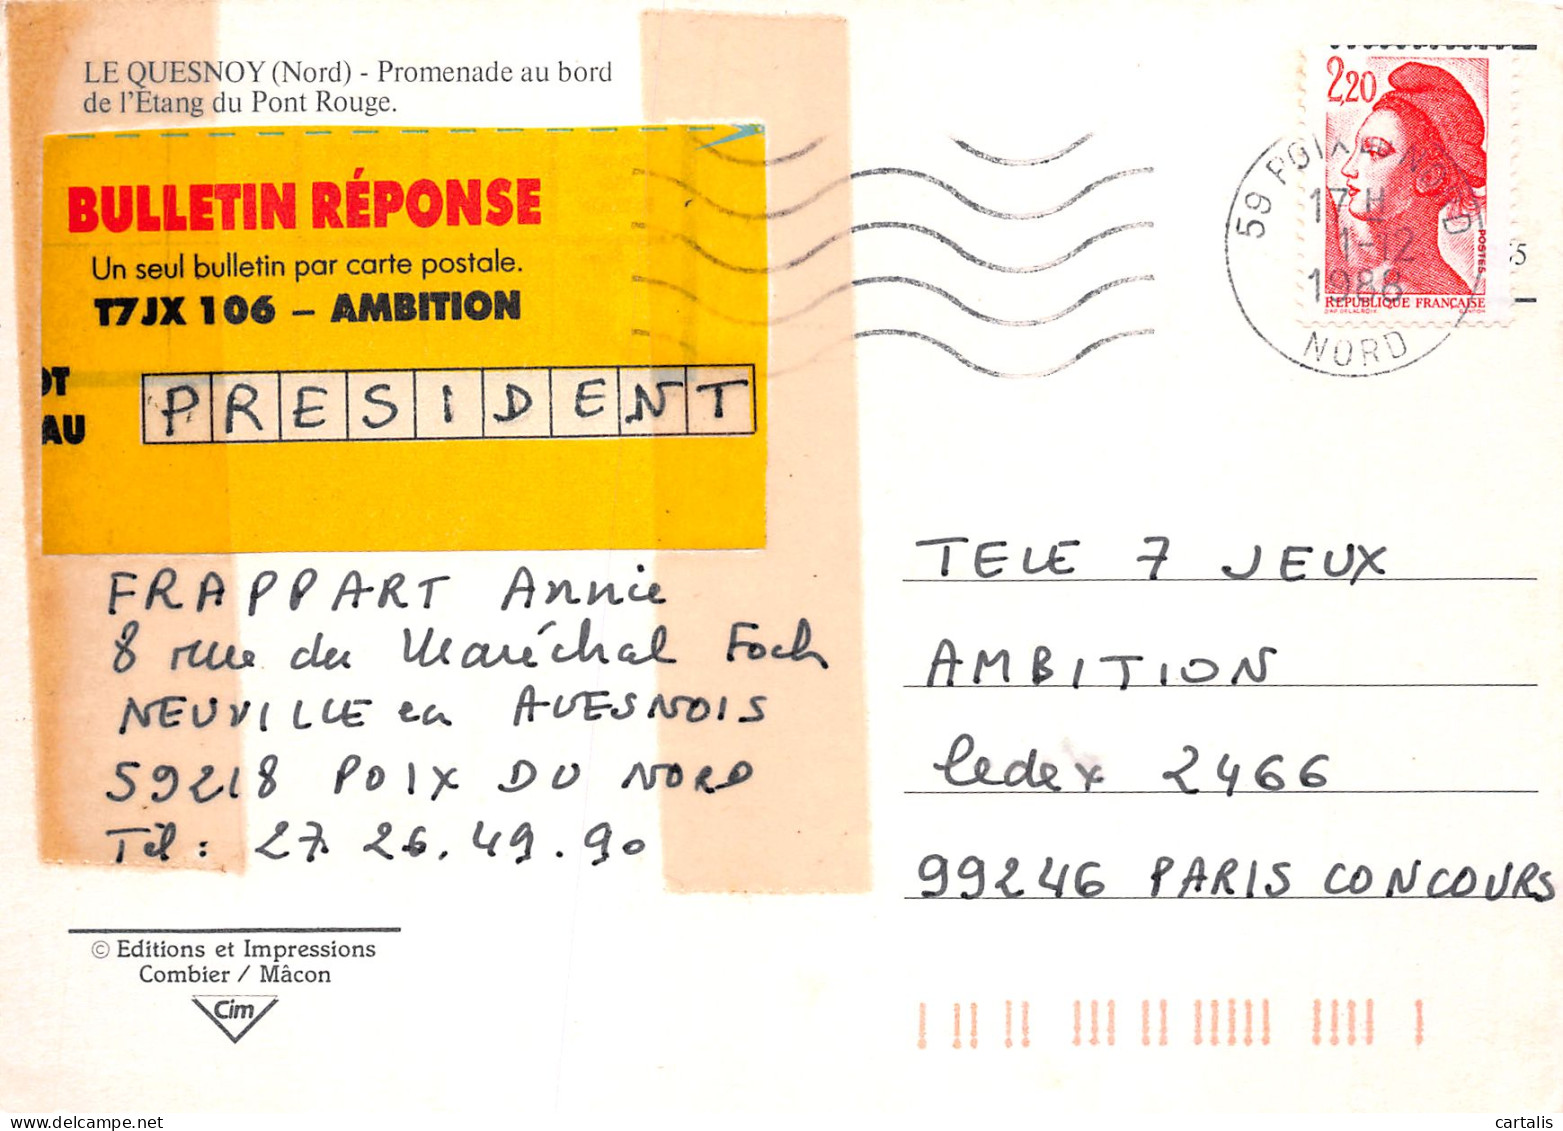 LE QUESNOY (Nord) - Promenade au bord
de l'Étang du Pont Rouge.
BULLETIN RÉPONSE
Un seul bulletin par carte postale.
T7JX 106 – AMBITION
OT
AU
PRESIDENT
FRAPPART Annie
8 rue du Maréchal Foch
NEUVILLE en AVESNOIS
59218 POIX DU NORD
Tél : 27 26. 49. 90
© Editions et Impressions
Combier / Mâcon
Cim
2,20
POSTES
RÉPUBLIQUE FRANÇAISE
59 POIX-DU-NORD
17 H
1-12
1986
NORD
TELE 7 JEUX
AMBITION
Cedex 2466
99246 PARIS CONCOURS
cartalis